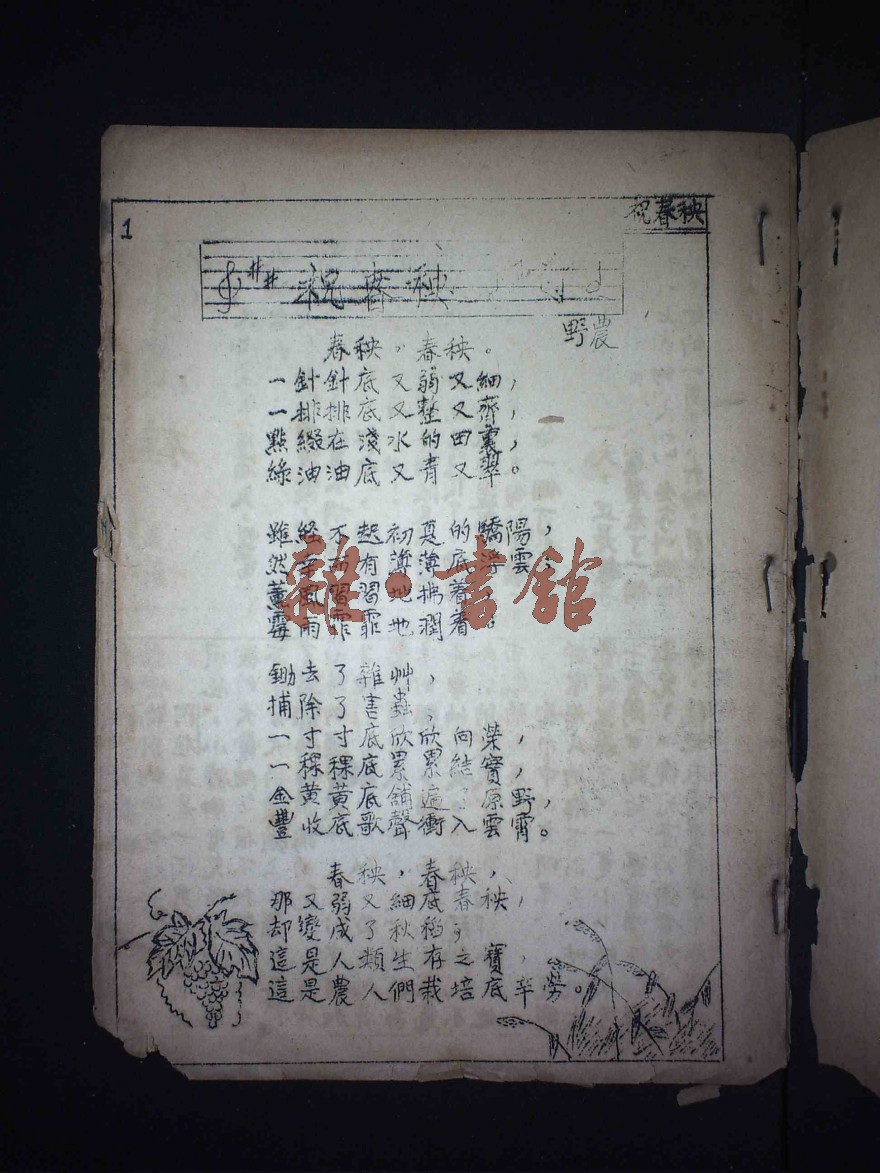 祝春秧
1
祝春秧
野農
春秧,春秧。
一針針底又弱又細,
一排排底又整又齊,
點綴在淺水的田裏,
綠油油底又青又翠。
雖經不起初夏的驕陽,
然幸而有薄薄底浮雲,
薰風習習地拂着
霉雨霏霏地潤着
鋤去了雜艸,
捕除了害蟲,
一寸寸底欣欣向榮,
一稞稞底累累結實,
金黃黃底舖遍了原野,
豐收底歌聲衝入雲霄。
春秧,春秧,
那又弱又細底春秧,
却變成了秋稻
這是人類生存之寶,
這是農人們栽培底辛勞。
雜·書館